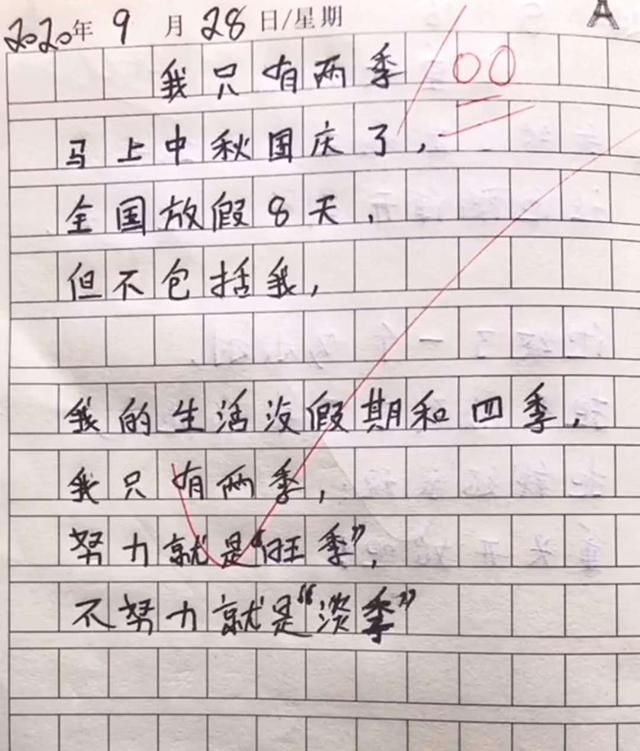 2020年 9 月 28 日/星期
A
我只有两季
100
马上中秋国庆了，
全国放假8天，
但不包括我，
我的生活没假期和四季，
我只有两季，
努力就是“旺季”，
不努力就是“淡季”